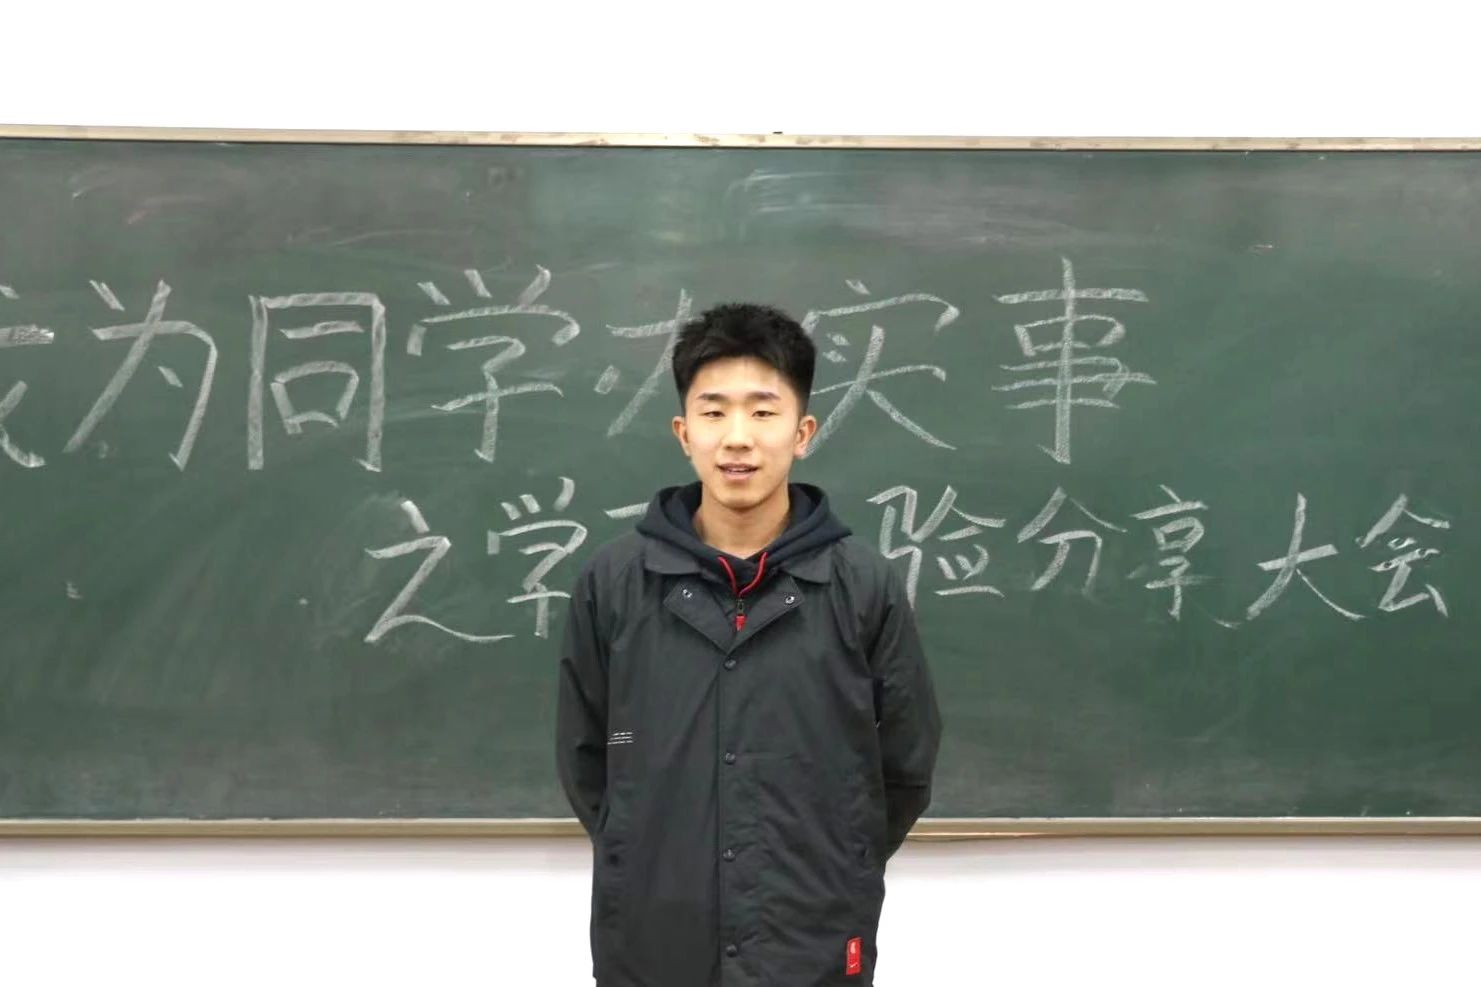 我为同学办实事
之学 验分享大会